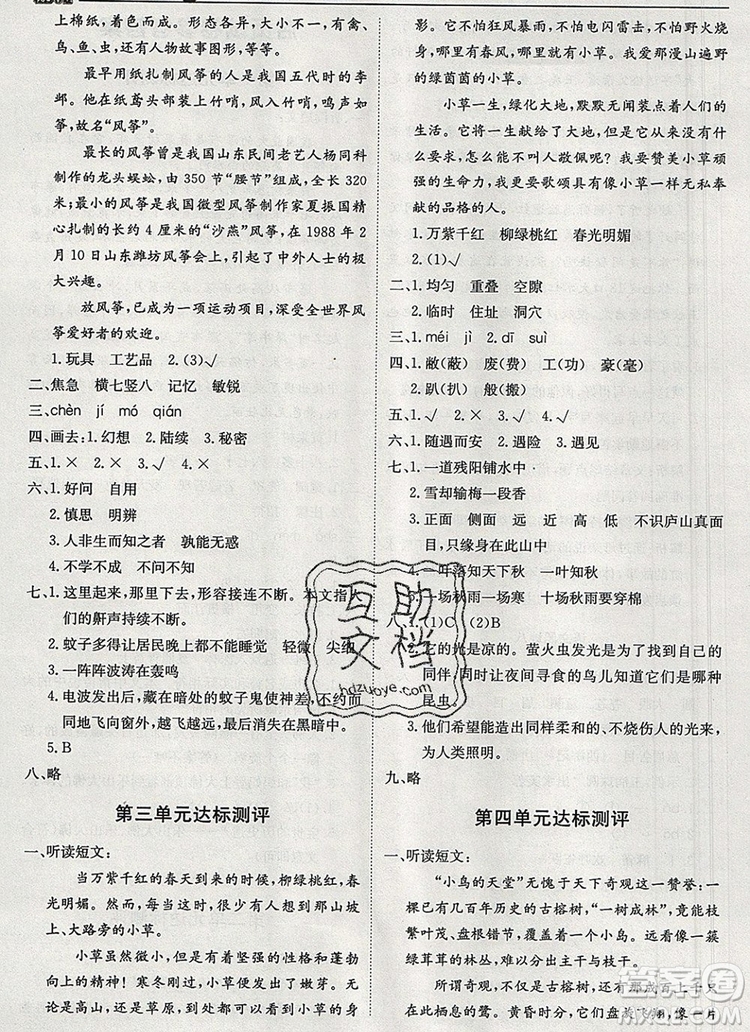 上棉纸，着色而成。形态各异，有人物、禽、
鸟、鱼、虫，还有人物故事图，等等。
最早用纸扎制风筝的人是我国五代时的李
邺。他在纸鸢头部绑上竹哨，风吹竹哨，鸣声如
筝，故名“风筝”。
最长的风筝曾是我国山东民间老艺人杨同科
制作的龙头蜈蚣，由 350 节“腰节”组成，全长 320
米；最小的风筝是我国微型风筝制作家夏振国精
心扎制的长约 4 厘米的“沙燕”风筝，在 1988 年 2
月 10 日山东潍坊风筝会上，引起了中外人士的极
大兴趣。
放风筝，已成为一项运动项目，深受全世界风
筝爱好者的欢迎。
1. 玩具 工艺品 2. (3)√
二、焦急 横七竖八 记忆 敏锐
三、chèn jí mó qián
四、画去：1. 幻想 2. 陆续 3. 秘密
五、1. × 2. × 3. √ 4. ×
六、1. 好问 自用
2. 慎思 明辨
3. 人非生而知之者 孰能无惑
4. 不学不成 不问不知
七、1. 这里起来，那里下去，形容接连不断。本文指人
们的鼾声持续不断。
2. 蚊子多得让居民晚上都不能睡觉 轻微 尖细
3. 一阵阵波涛在轰鸣
4. 电波发出后，藏在暗处的蚊子鬼使神差，不约而
同地飞向窗外，越飞越远，最后消失在黑暗中。
5. B
八、略
第三单元达标测评
一、听读短文：
当万紫千红的春天到来的时候，柳绿桃红，春
光明媚。然而，我却更爱那些生长在田野里、山坡
上、大路旁的小草。
小草虽然微小，但是有着坚强的性格和蓬勃
向上的精神！寒冬刚过，小草便发出了嫩芽。无
论是高山，还是草原，到处都有小草坚强的身
影。它不怕狂风暴雨，不怕电闪雷鸣，不怕野火烧
身，哪里有春风，哪里就有小草。我爱那漫山遍野
的绿茵茵的小草。
小草一生，绿化大地，默默无闻装点着人们的
生活。它将一生献给了大地，作出这么多的贡献却
不要求索取，怎么能不向它敬佩呢？我要赞美小草顽
强的生命力，我更要歌颂具有像小草一样无私奉
献的品格的人。
1. 万紫千红 柳绿桃红 春光明媚
2. (1)√
二、1. 均匀 重叠 空隙
2. 临时 住址 洞穴
三、1. méi jì 2. dī suì
四、1. 敝(蔽) 废(费) 工(功) 豪(毫)
2. 趴(扒) 般(搬)
五、1. √ 2. × 3. √ 4. √
六、1. 随遇而安 2. 遇险 3. 遇见
七、1. 一道残阳铺水中
2. 雪却输梅一段香
3. 正面 侧面 远 近 高 低 不识庐山真面
目，只缘身在此山中
4. 一叶落知天下秋 一叶知秋
5. 一场秋雨一场寒 十场秋雨要穿棉
八、1. (1)C (2)B
2. 它的光是凉的。萤火虫发光是为了找到自己的
同伴，同时让夜间寻食的鸟儿知道它们是哪种
昆虫。
3. 他们希望能造出同样柔和、不烧伤人的光来，
为人类照明。
九、略
第四单元达标测评
一、听读短文：
“小鸟的天堂”无愧于天下奇观这一赞誉：一
棵已有四五百年树龄的古榕树，“一树成林”，枝
繁叶茂、盘根错节，覆盖着一个小岛。远看像一簇
绿茸茸的灌木丛，近观则分不出主枝与主干。
所谓奇观，不仅是这棵古榕树，还有成百上千只
在此栖息的鹭。黄昏时分，它们盘旋飞翔，像一片
互助文档
hdzuoye.com
答案圈